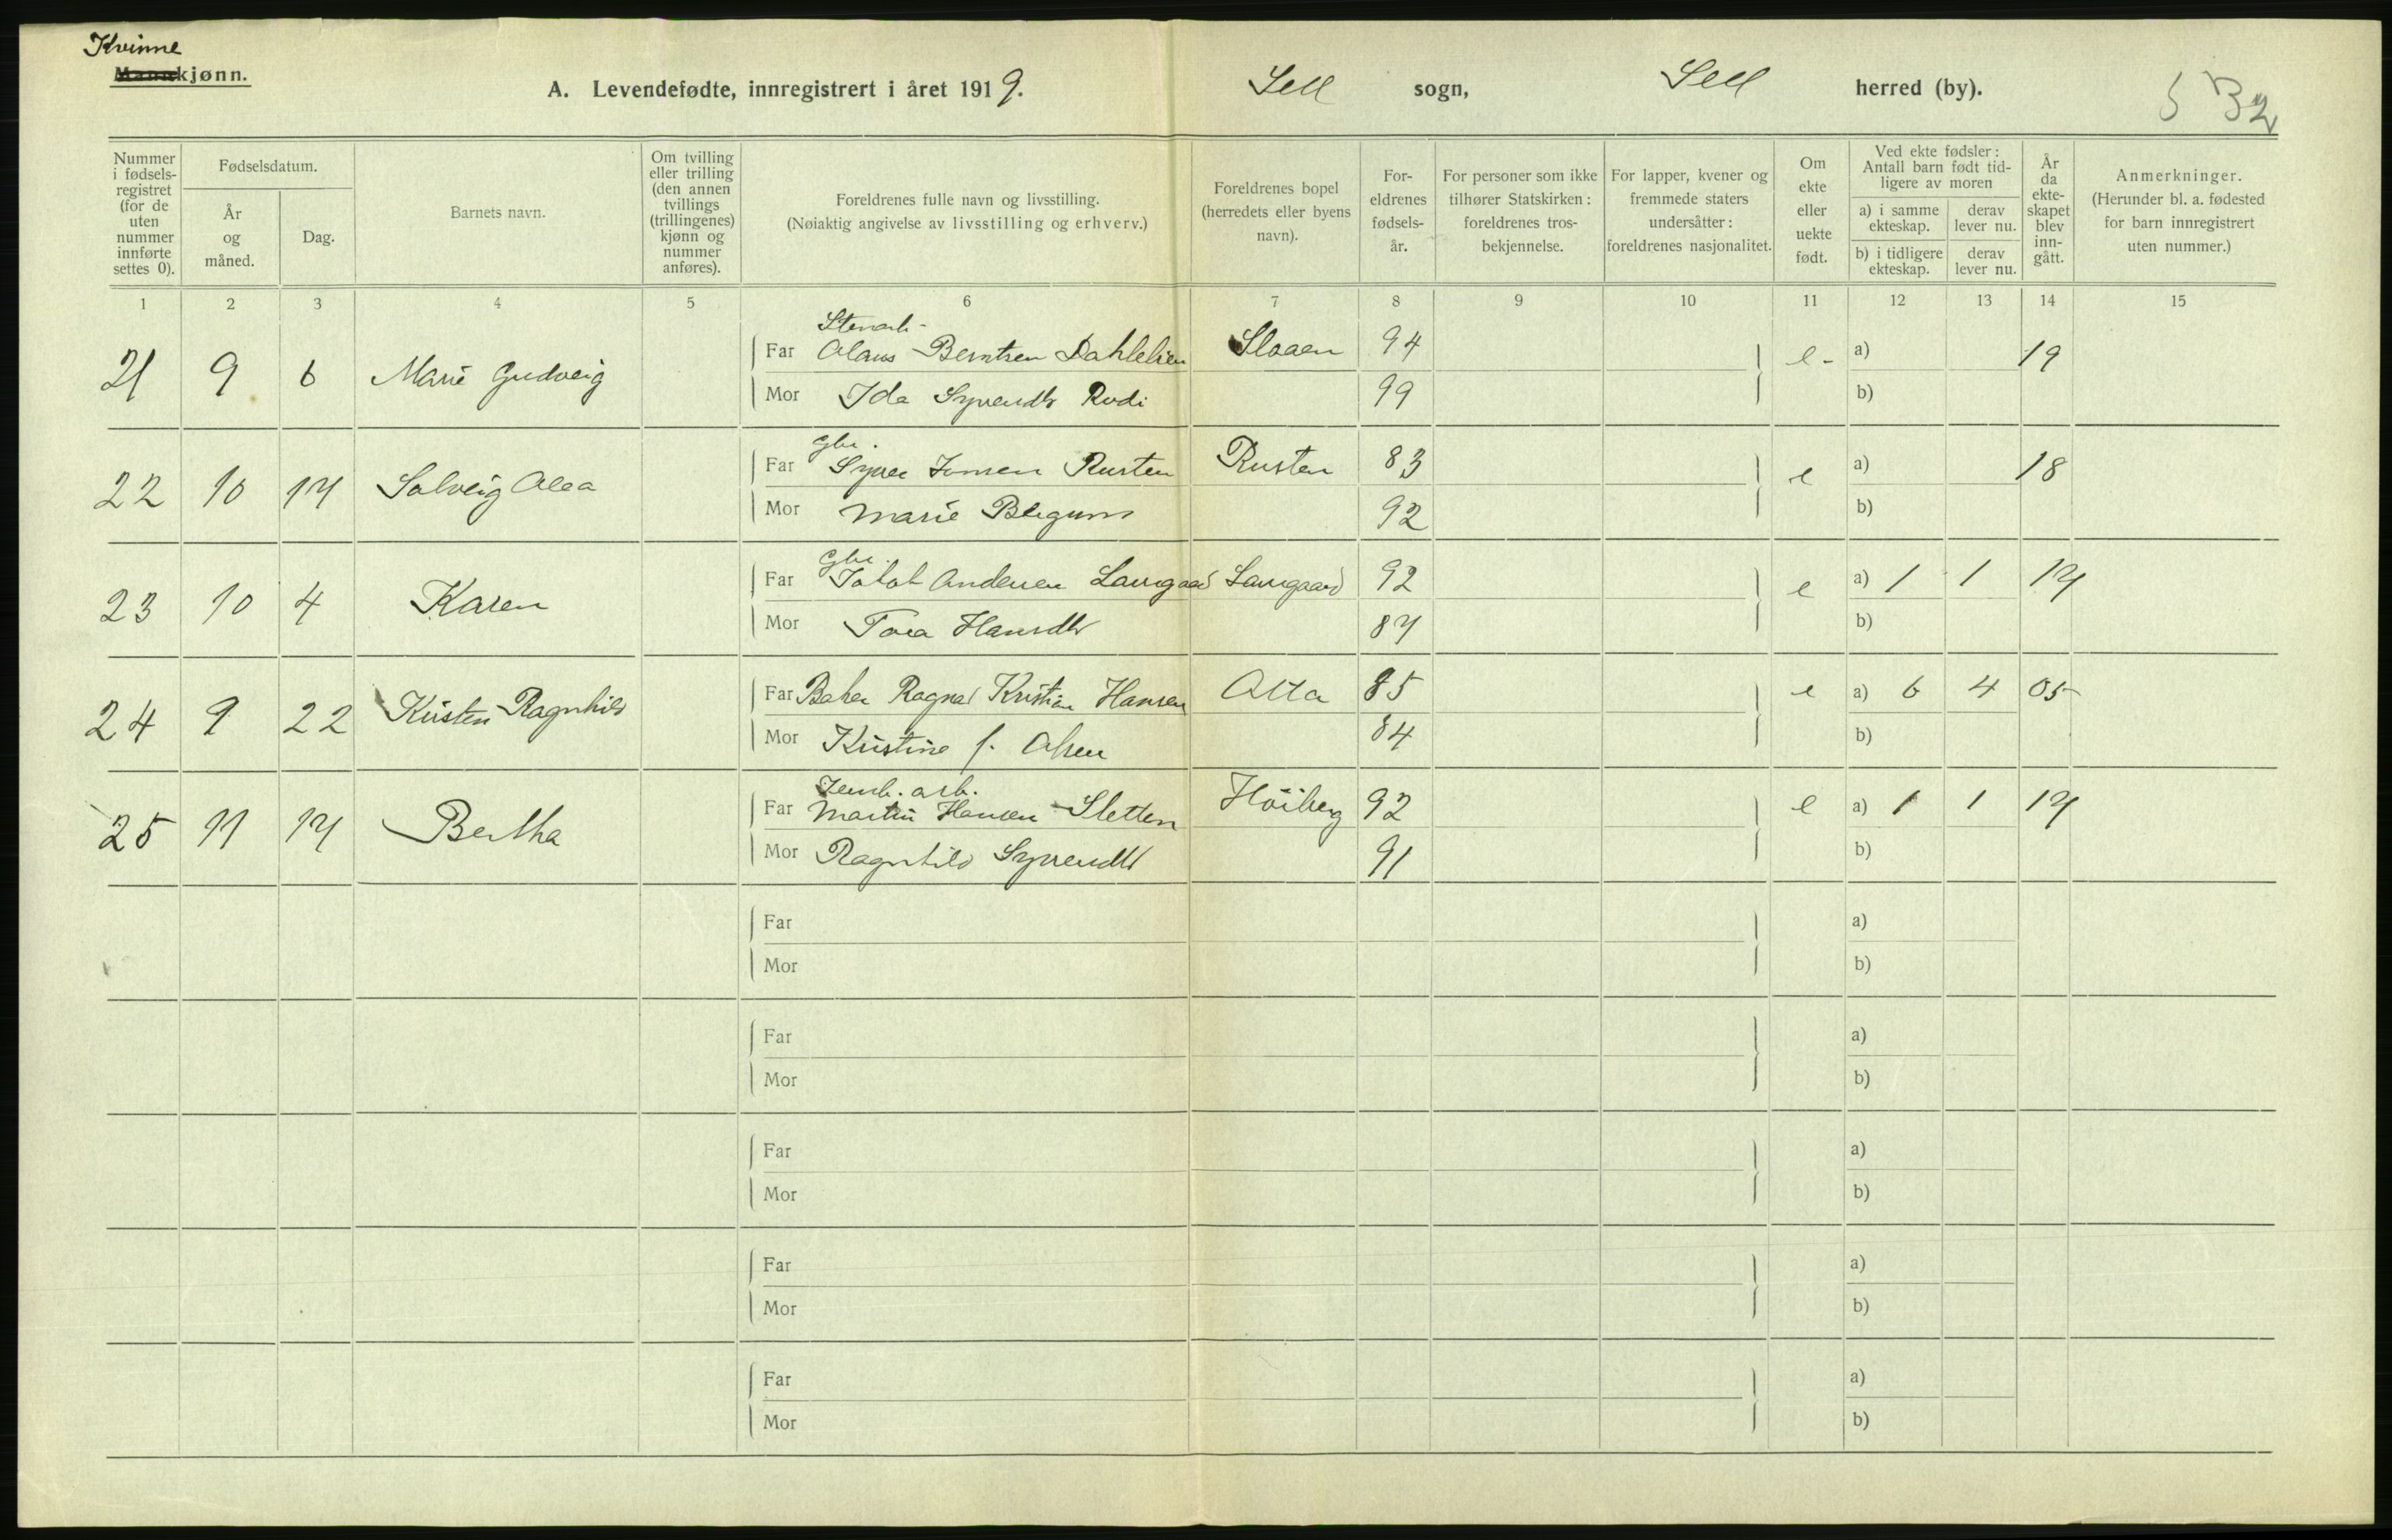 Kvinne
Mannkjønn.
A. Levendefødte, innregistrert i året 1919. Sell sogn, Sell herred (by). 532
Nummer i fødselsregistret (for de uten nummer innførte settes 0).
Fødselsdatum.
År og måned.
Dag.
Barnets navn.
Om tvilling eller trilling (den annen tvillings (trillingenes) kjønn og nummer anføres).
Foreldrenes fulle navn og livsstilling.
(Nøiaktig angivelse av livsstilling og erhverv.)
Foreldrenes bopel (herredets eller byens navn).
Foreldrenes fødselsår.
For personer som ikke tilhører Statskirken: foreldrenes trosbekjennelse.
For lapper, kvener og fremmede staters undersåtter: foreldrenes nasjonalitet.
Om ekte eller uekte født.
Ved ekte fødsler: Antall barn født tidligere av moren
a) i samme ekteskap. derav lever nu.
b) i tidligere ekteskap. derav lever nu.
År da ekteskapet blev inngått.
Anmerkninger.
(Herunder bl. a. fødested for barn innregistrert uten nummer.)
1 2 3 4 5 6 7 8 9 10 11 12 13 14 15
Stenarb-
21 9 6 Marie Gudveig Far Olaus Berntsen Dahlelien Slaaen 94 e- a) 19
Mor Ida Syversdtr Rudi 99 b)
Gbr.
22 10 17 Solveig Far Syver Rusten Rusten 83 e a) 18
Mor Marie 92 b)
Gbr.
23 10 4 Karen Far Jakob Andersen Laurgaard Laurgaard 92 e a) 1 1 17
Mor Tora Hansdtr 87 b)
24 9 22 Kirsten Ragnhild Far Baker Ragnar Kristian Hansen Otta 85 e a) 6 4 05
Mor Kristine f. Olsen 84 b)
Jernb. arb.
25 11 17 Bertha Far Martin Hansen Sletten Höiberg 92 e a) 1 1 17
Mor Ragnhild Syversdtr 91 b)
Far a)
Mor b)
Far a)
Mor b)
Far a)
Mor b)
Far a)
Mor b)
Far a)
Mor b)